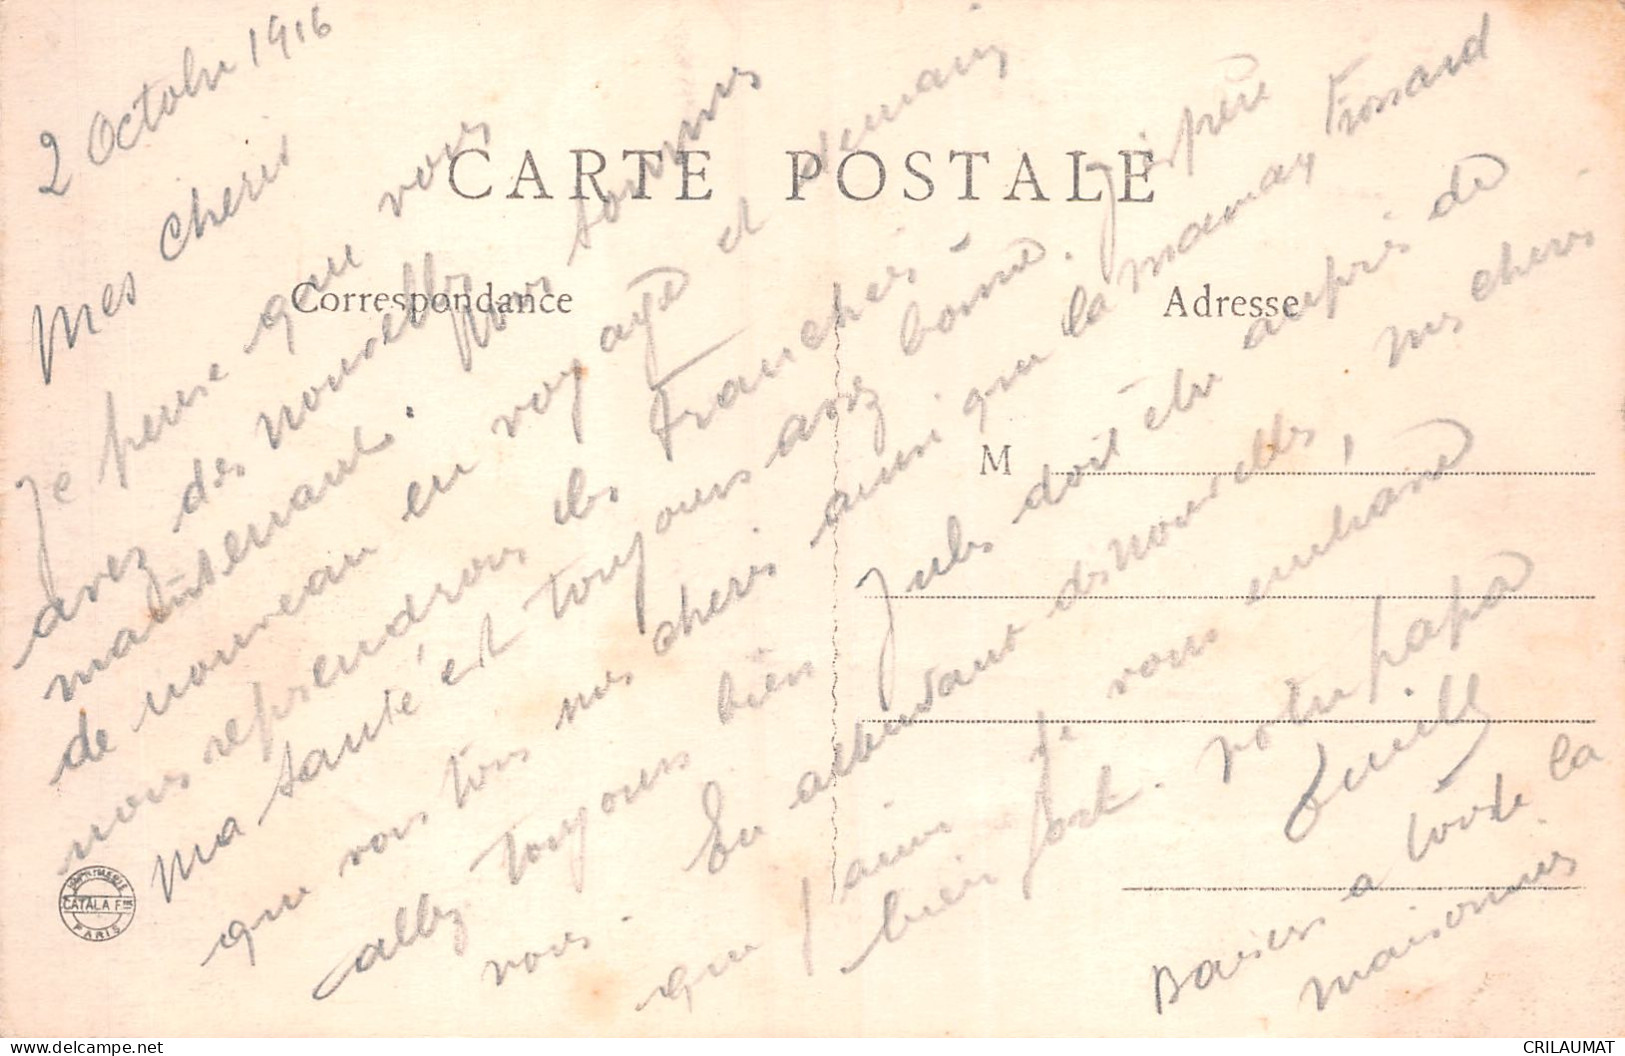 2 Octobre 1916
Mes cheris
CARTE POSTALE
Correspondance
Adresse
M
Je pense que vous
avez des nouvelles
maintenant. Nous sommes
de nouveau en voyage et demain
nous reprendrons les tranchées.
Ma santé est toujours assez bonne. J'espère
que vous tous mes cheris ainsi que la maman Frossard
allez toujours bien. Jules doit être auprès de
vous. En attendant des nouvelles, mes cheris
que j'aime je vous embrasse
bien fort. Votre papa
Baisers a toute la
maisonnée
IMPRIMERIE
CATALA Frs
PARIS
CRILAUMAT